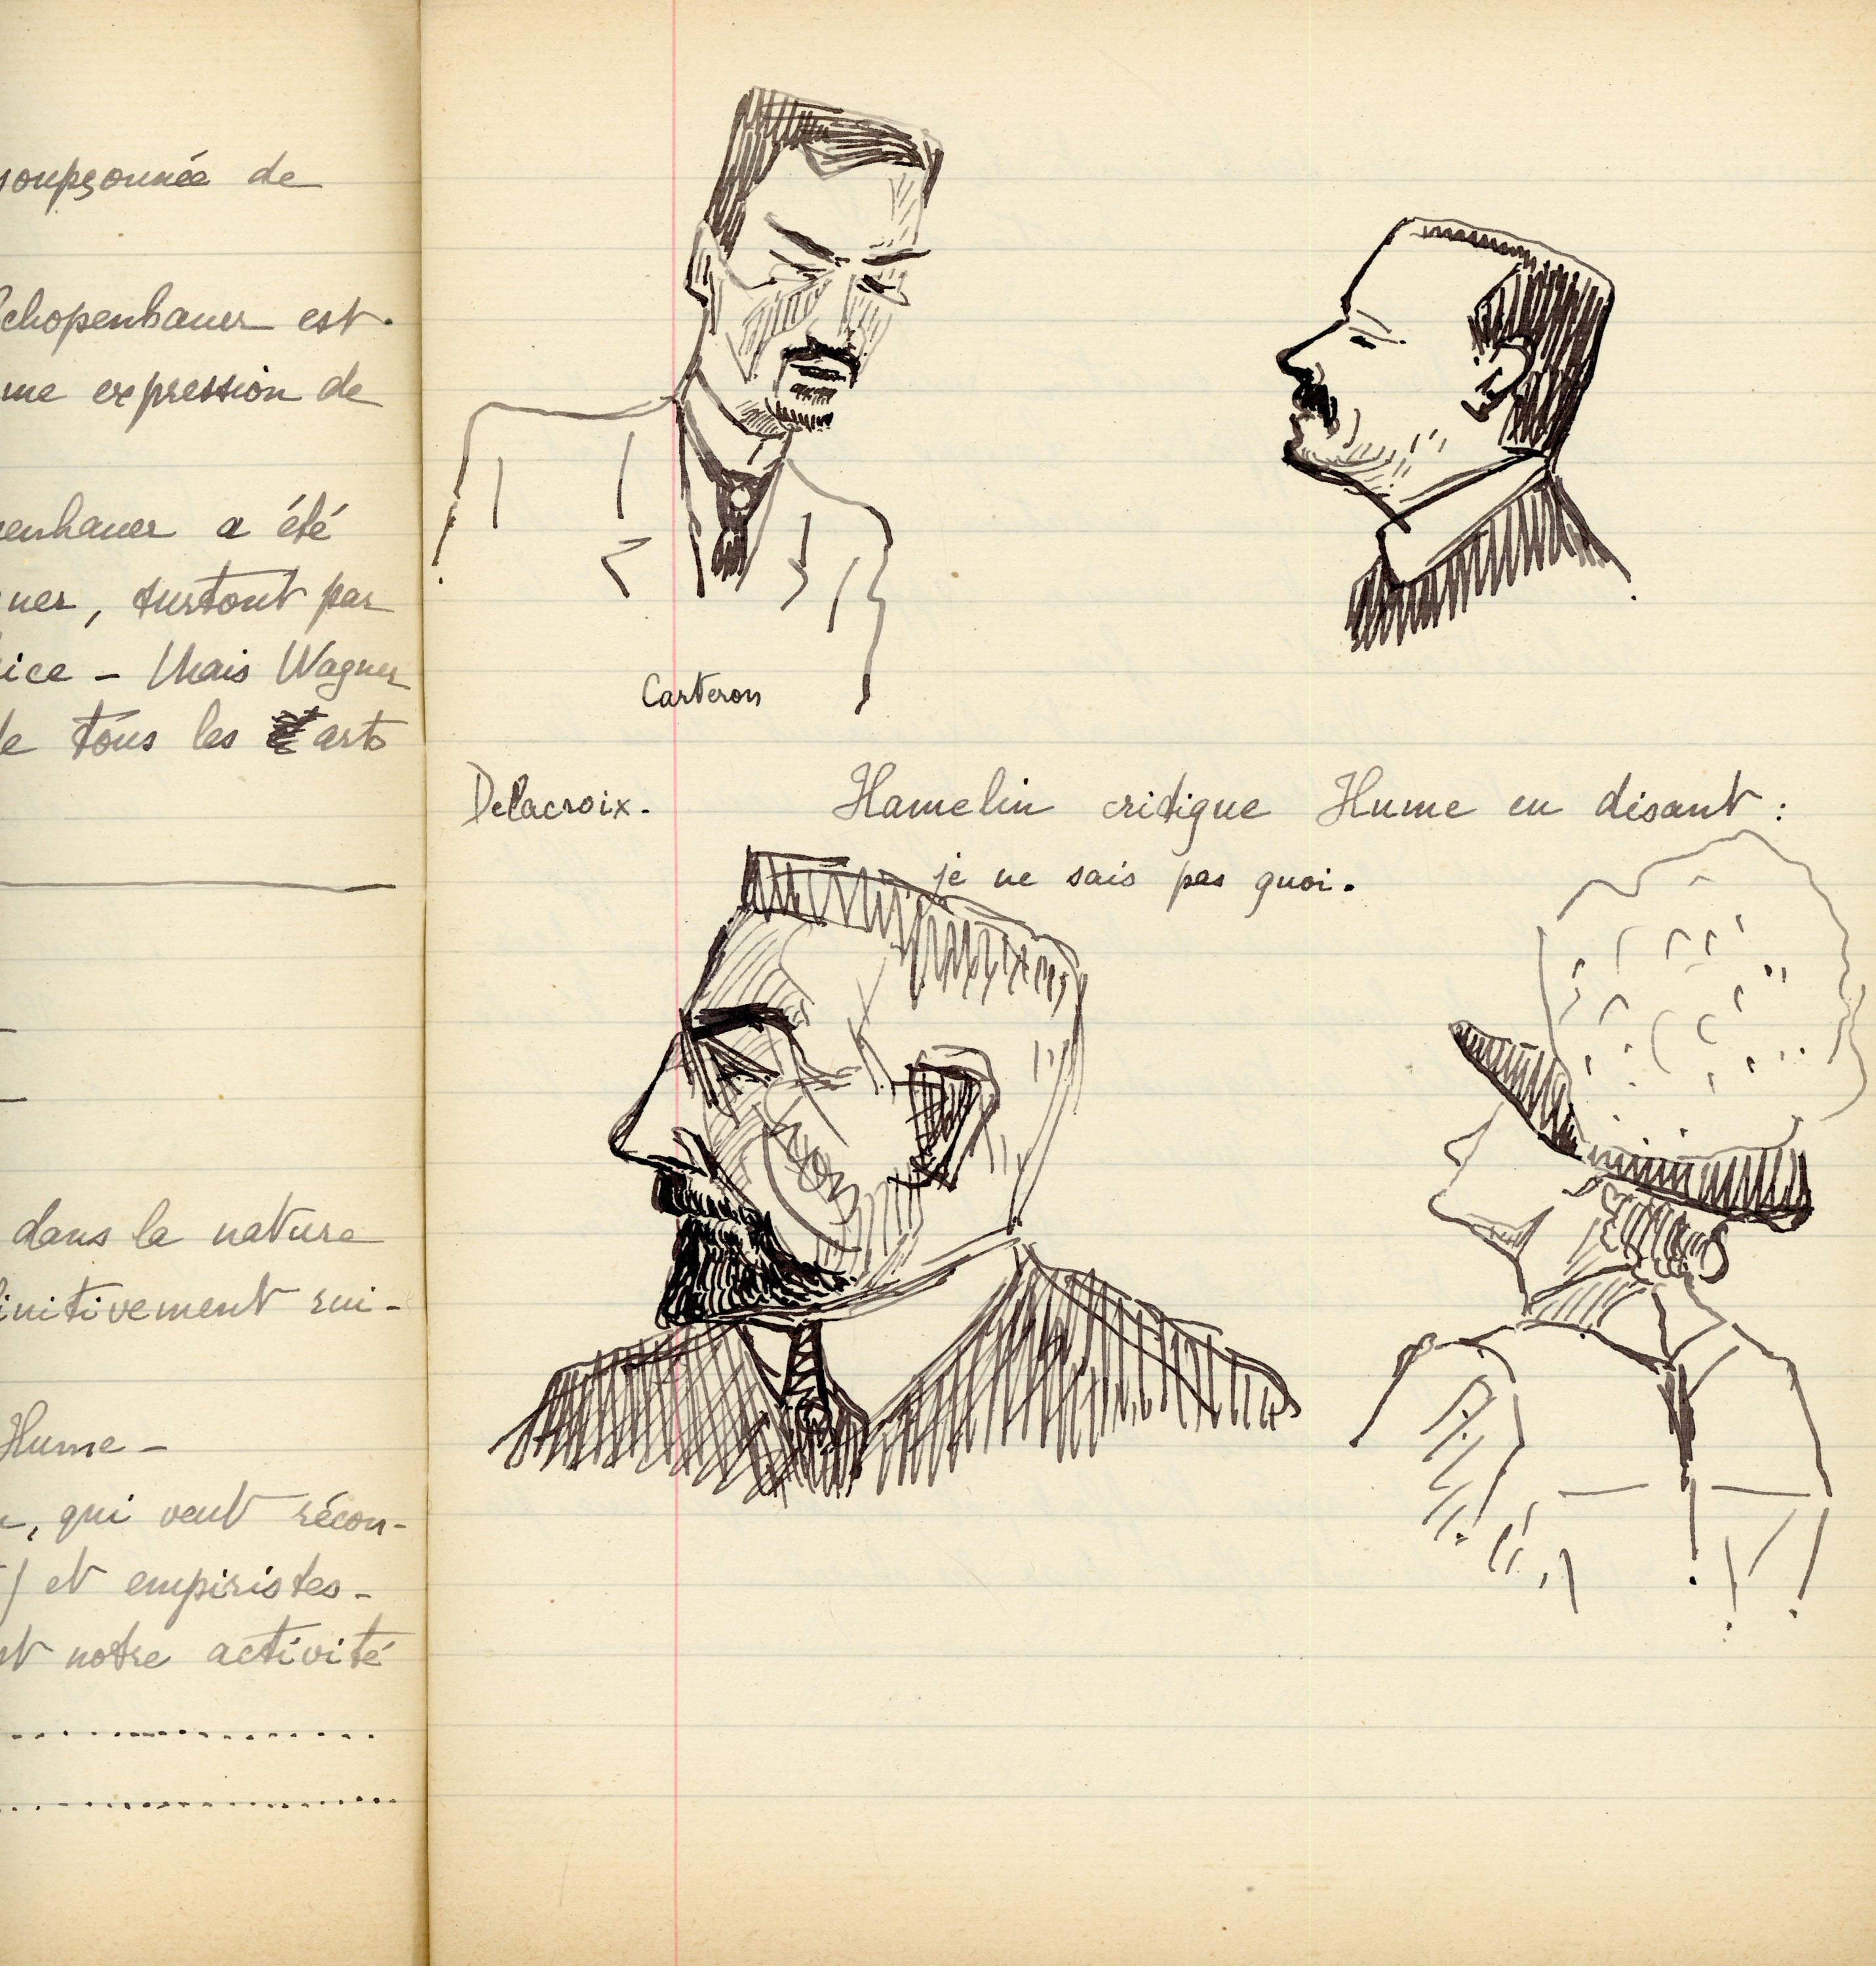 soupçonnée de
Schopenhauer est
me expression de
enhauer a été
ner, surtout par
ice - Mais Wagner
de tous les arts
dans la nature
initivement sui-
Hume -
, qui veut récon-
) et empiristes -
nt notre activité
Carteron
Delacroix. Hamelin critique Hume en disant :
je ne sais pas quoi.